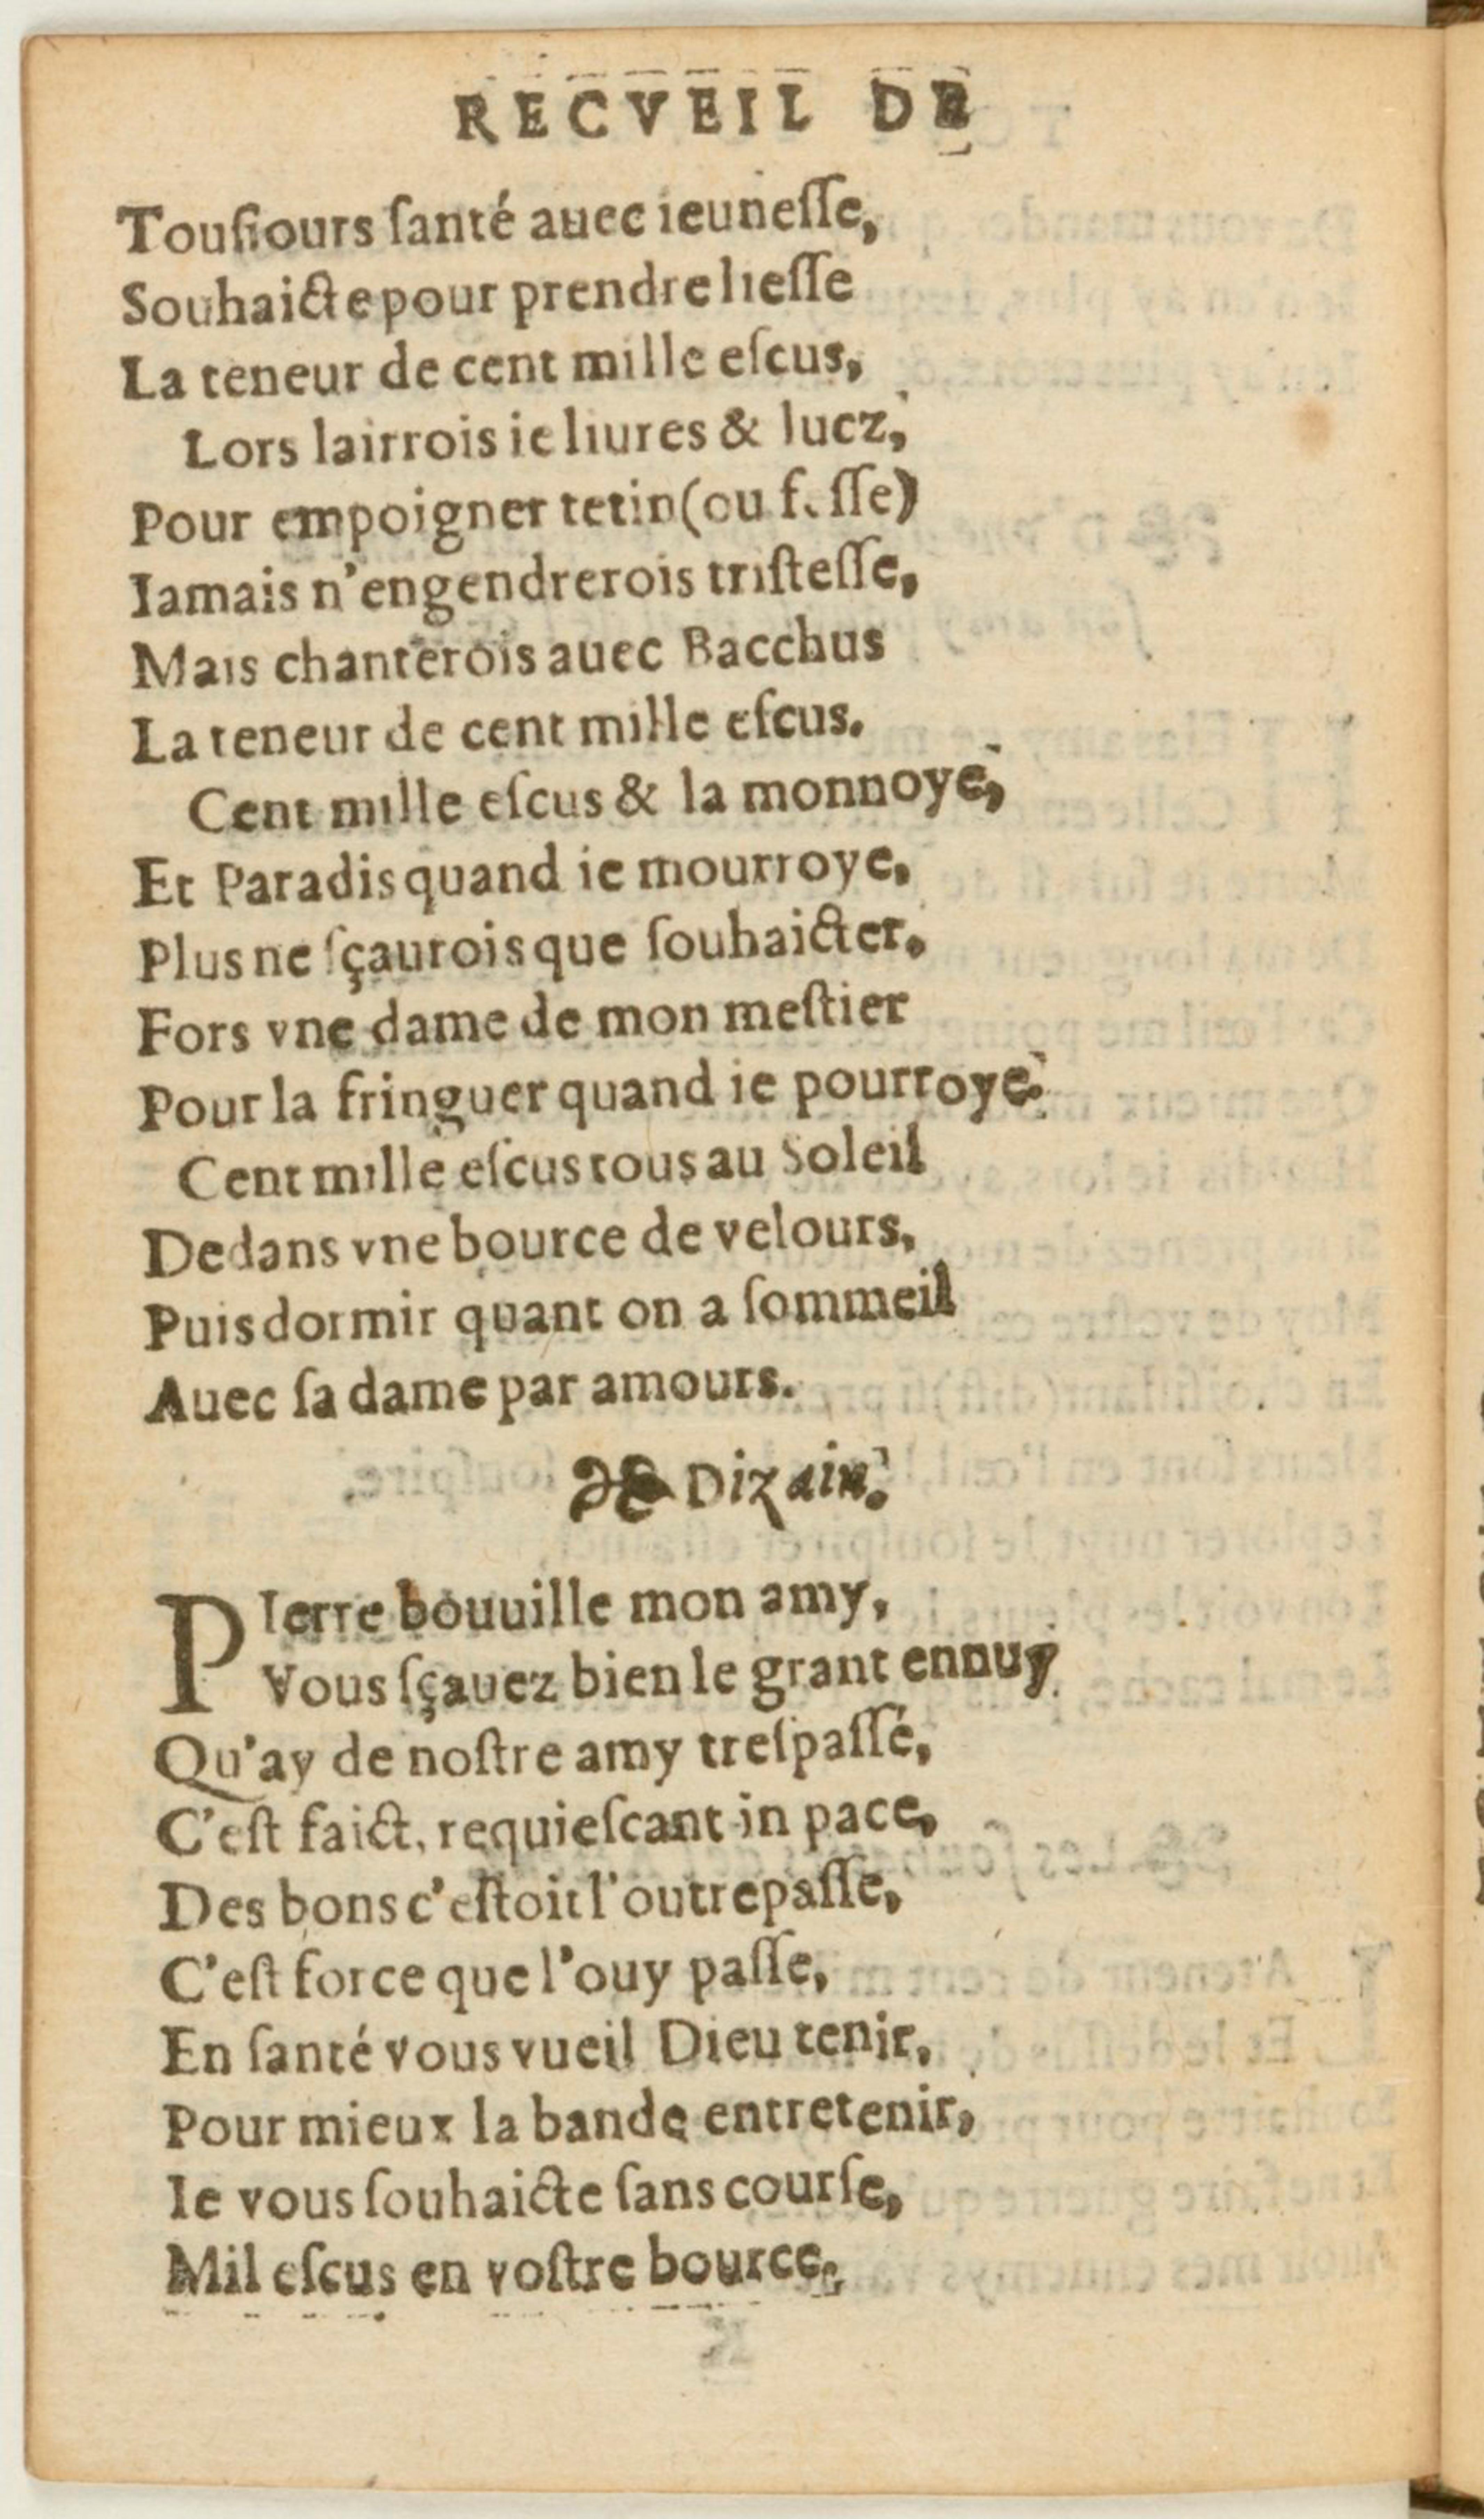 RECVEIL DE
Touſiours ſanté auec ieuneſſe,
Souhaicte pour prendre lieſſe
La teneur de cent mille eſcus,
Lors lairrois ie liures & lucz,
Pour empoigner tetin (ou f. ſſe)
Iamais n'engendrerois triſteſſe,
Mais chanterois auec Bacchus
La teneur de cent mille eſcus.
Cent mille eſcus & la monnoye,
Et Paradis quand ie mourroye,
Plus ne ſçaurois que ſouhaicter.
Fors vne dame de mon meſtier
Pour la fringuer quand ie pourroye.
Cent mille eſcus tous au Soleil
Dedans vne bource de velours,
Puis dormir quant on a ſommeil
Auec ſa dame par amours.
Dizain.
PIerre bouuille mon amy,
Vous ſçauez bien le grant ennuy
Qu'ay de noſtre amy treſpaſſé,
C'eſt faict, requieſcant in pace,
Des bons c'eſtoit l'outrepaſſe,
C'eſt force que l'ouy paſſe,
En ſanté vous vueil Dieu tenir,
Pour mieux la bande entretenir,
Ie vous ſouhaicte ſans courſe,
Mil eſcus en voſtre bource.